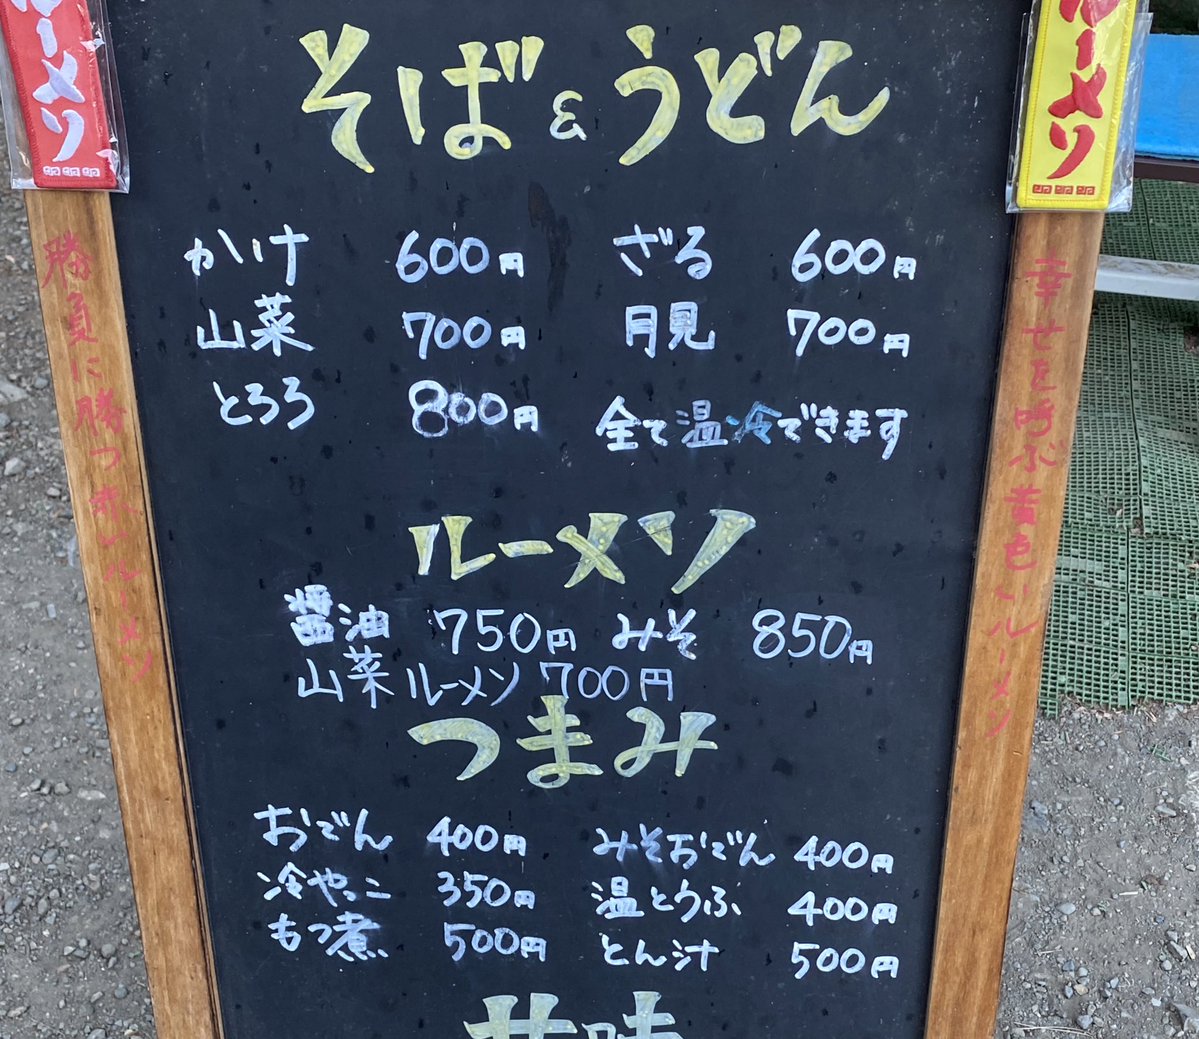 ルーメソ
ルーメソ
そば&うどん
かけ 600円 ざる 600円
山菜 700円 月見 700円
とろろ 800円 全て温冷できます
ルーメソ
醤油 750円 みそ 850円
山菜ルーメソ 700円
つまみ
おでん 400円 みそおでん 400円
冷やっこ 350円 温とうふ 400円
もつ煮 500円 とん汁 500円
甘味
勝負に勝つ赤いルーメソ
幸せを呼ぶ黄色いルーメソ